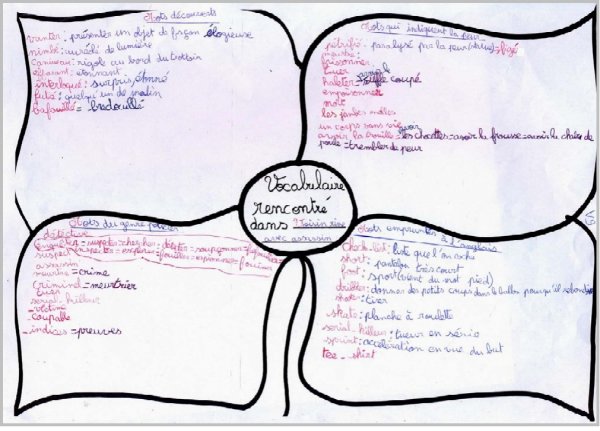 Mots découverts
vanter: présenter un objet de façon élogieuse
nimbé: auréolé de lumière
caniveau: rigole au bord du trottoir
effarant: étonnant
interloqué: surpris, étonné
futé: quelqu'un de malin
bafouillé = bredouillé
Mots qui indiquent la peur
pétrifié: paralysé par la peur (statue) = figé
frissonner
tuer
haleter = souffle coupé
empoisonner
mort
les jambes molles
un corps sans vie
avoir la trouille = avoir les chocottes = avoir la frousse = avoir la chair de
poule = trembler de peur
Vocabulaire
rencontré
dans Voisin rime
avec assassin
Mots du genre policier
détective
enquêter = inspecter = chercher = détecter = soupçonner =
suspect = = explorer = fouiller = espionner = fouiner
assassin
meurtre = crime
criminel = meurtrier
tuer
serial-killeur
- victime
- coupable
- indices = preuves
Mots empruntés à l'anglais
check-list: liste que l'on coche
short: pantalon très court
foot: sport (vient du mot pied)
dribbler: donner des petits coups dans le ballon pour qu'il
shoot: tirer
skate: planche à roulette
serial-killeur: tueur en série
sprint: accélération en vue du but
tee-shirt